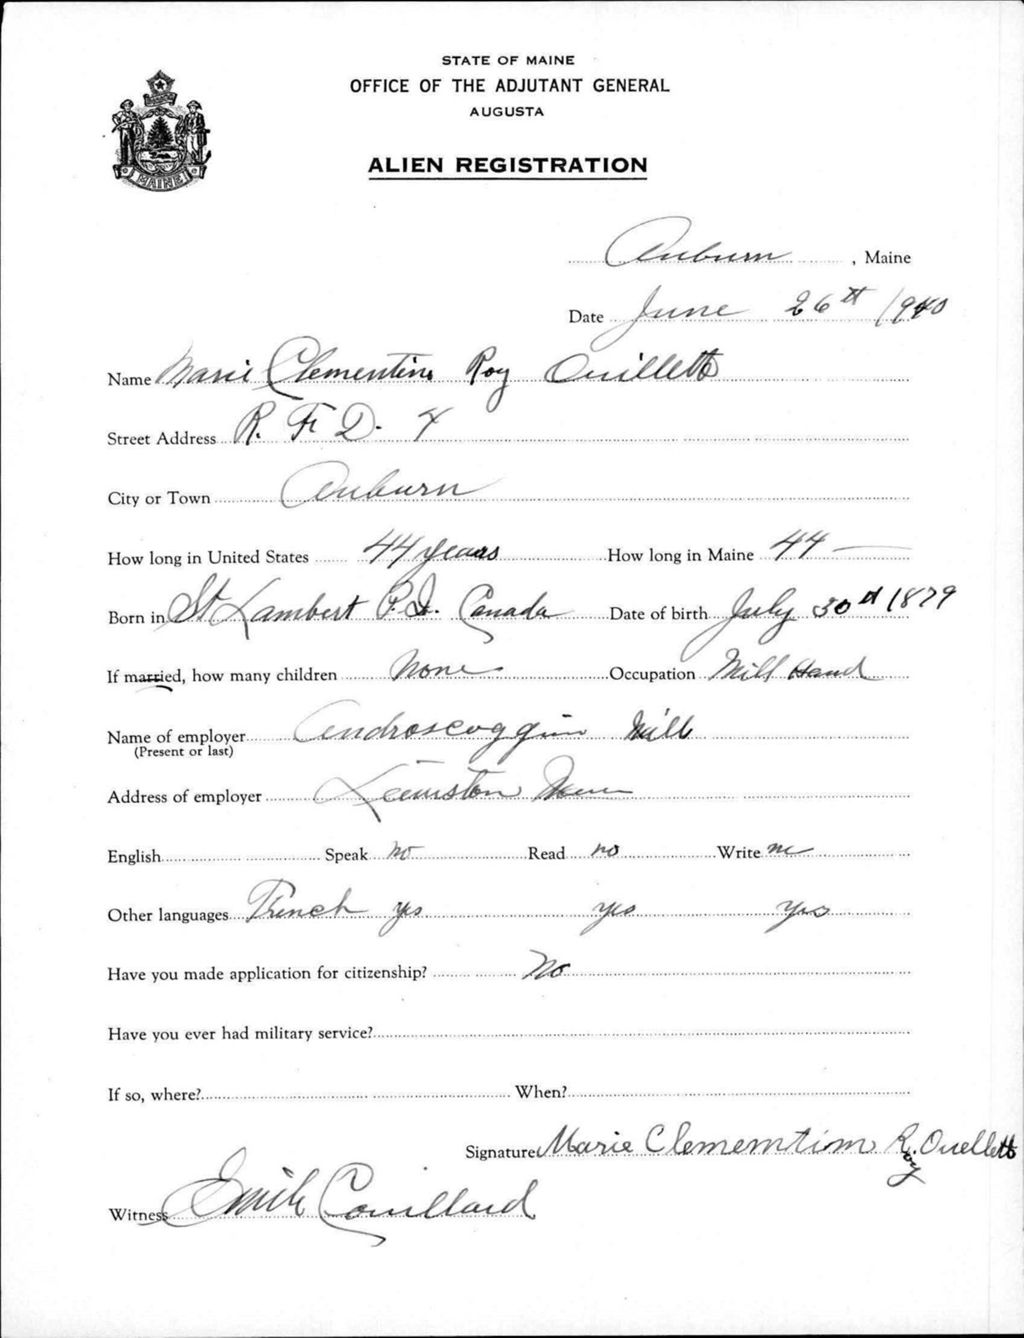 STATE OF MAINE
OFFICE OF THE ADJUTANT GENERAL
AUGUSTA
ALIEN REGISTRATION
MAINE
Auburn, Maine
Date June 26th 1940
Name Marie Clementine Roy Ouillette
Street Address R. F. D. 4
City or Town Auburn
How long in United States 44 years How long in Maine 44
Born in St Lambert P. Q. Canada Date of birth July 30th 1879
If married, how many children None Occupation Mill Hand
Name of employer Androscoggin Mill
(Present or last)
Address of employer Lewiston Maine
English Speak no Read no Write no
Other languages French yes yes yes
Have you made application for citizenship? No
Have you ever had military service?
If so, where? When?
Signature Marie Clementine R. Ouellette
Roy
Witness Emile Couillard